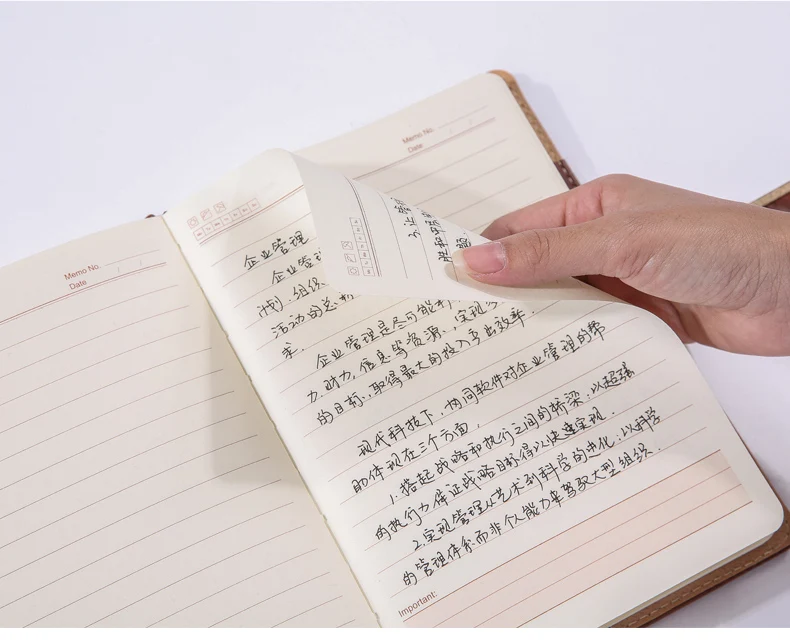 Memo No.
Date
Memo No.
Date
企业管理
企业管理
计划、组织
活动的总称
求.
企业管理是尽可能利
力,财力,信息等资源,实现多
的目标,取得最大的投入产出效率.
现代科技下,协同软件对企业管理的帮
助体现在三个方面,
1.搭起战略和执行之间的桥梁,以超强
的执行力保证战略目标得以快速实现.
2.实现管理从艺术到科学的进化:以科学
的管理体系而非个人能力来驾驭大型组织.
Important:
3.让管